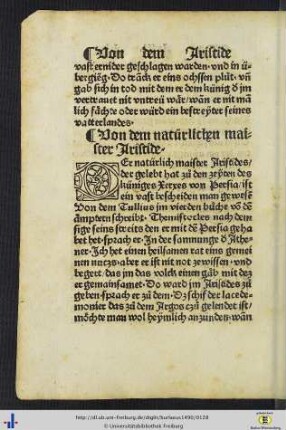 ¶Von dem Aristide
vast ernider geschlagen warden· vnd in ü-
bergieng· Do tranck er eins ochssen plůt· vñ
gab sich in tod mit dem er dem künig d̕ jm
vertrawet nit vntreü wär/ wañ er nit mä
lich fächte oder würd ein bestreyter seines
vatterlandes·
¶Von dem natürlichen mai-
ster Aristide·
DEr natürlich maister Aristides/
der gelebt hat zů den zeyten des
küniges Xerxes von Persia/ ist
ein vast bescheiden man gewesẽ
Von dem Tullius jm vierden bůche võ dẽ
ämptern schreibt· Themistocles nach dem
sige seins streits den er mit dẽ Persia geha
bet het· sprach er· In der samnunge d̕ Athe-
ner· Ich het einen heilsamen rat eins gemei
nen nutzs· aber er ist nit not ze wissen· vnd
begert· das jm das volck einen gäb mit dez
er gemainsamet· Do ward jm Aristides zů
geben· sprach er zů dem· Dz schif der lacede-
monier das zů dem Argos czů gelendet ist/
möchte man wol heymlich anzunden· wañ
http://dl.ub.uni-freiburg.de/diglit/burlaeus1490/0128
© Universitätsbibliothek Freiburg